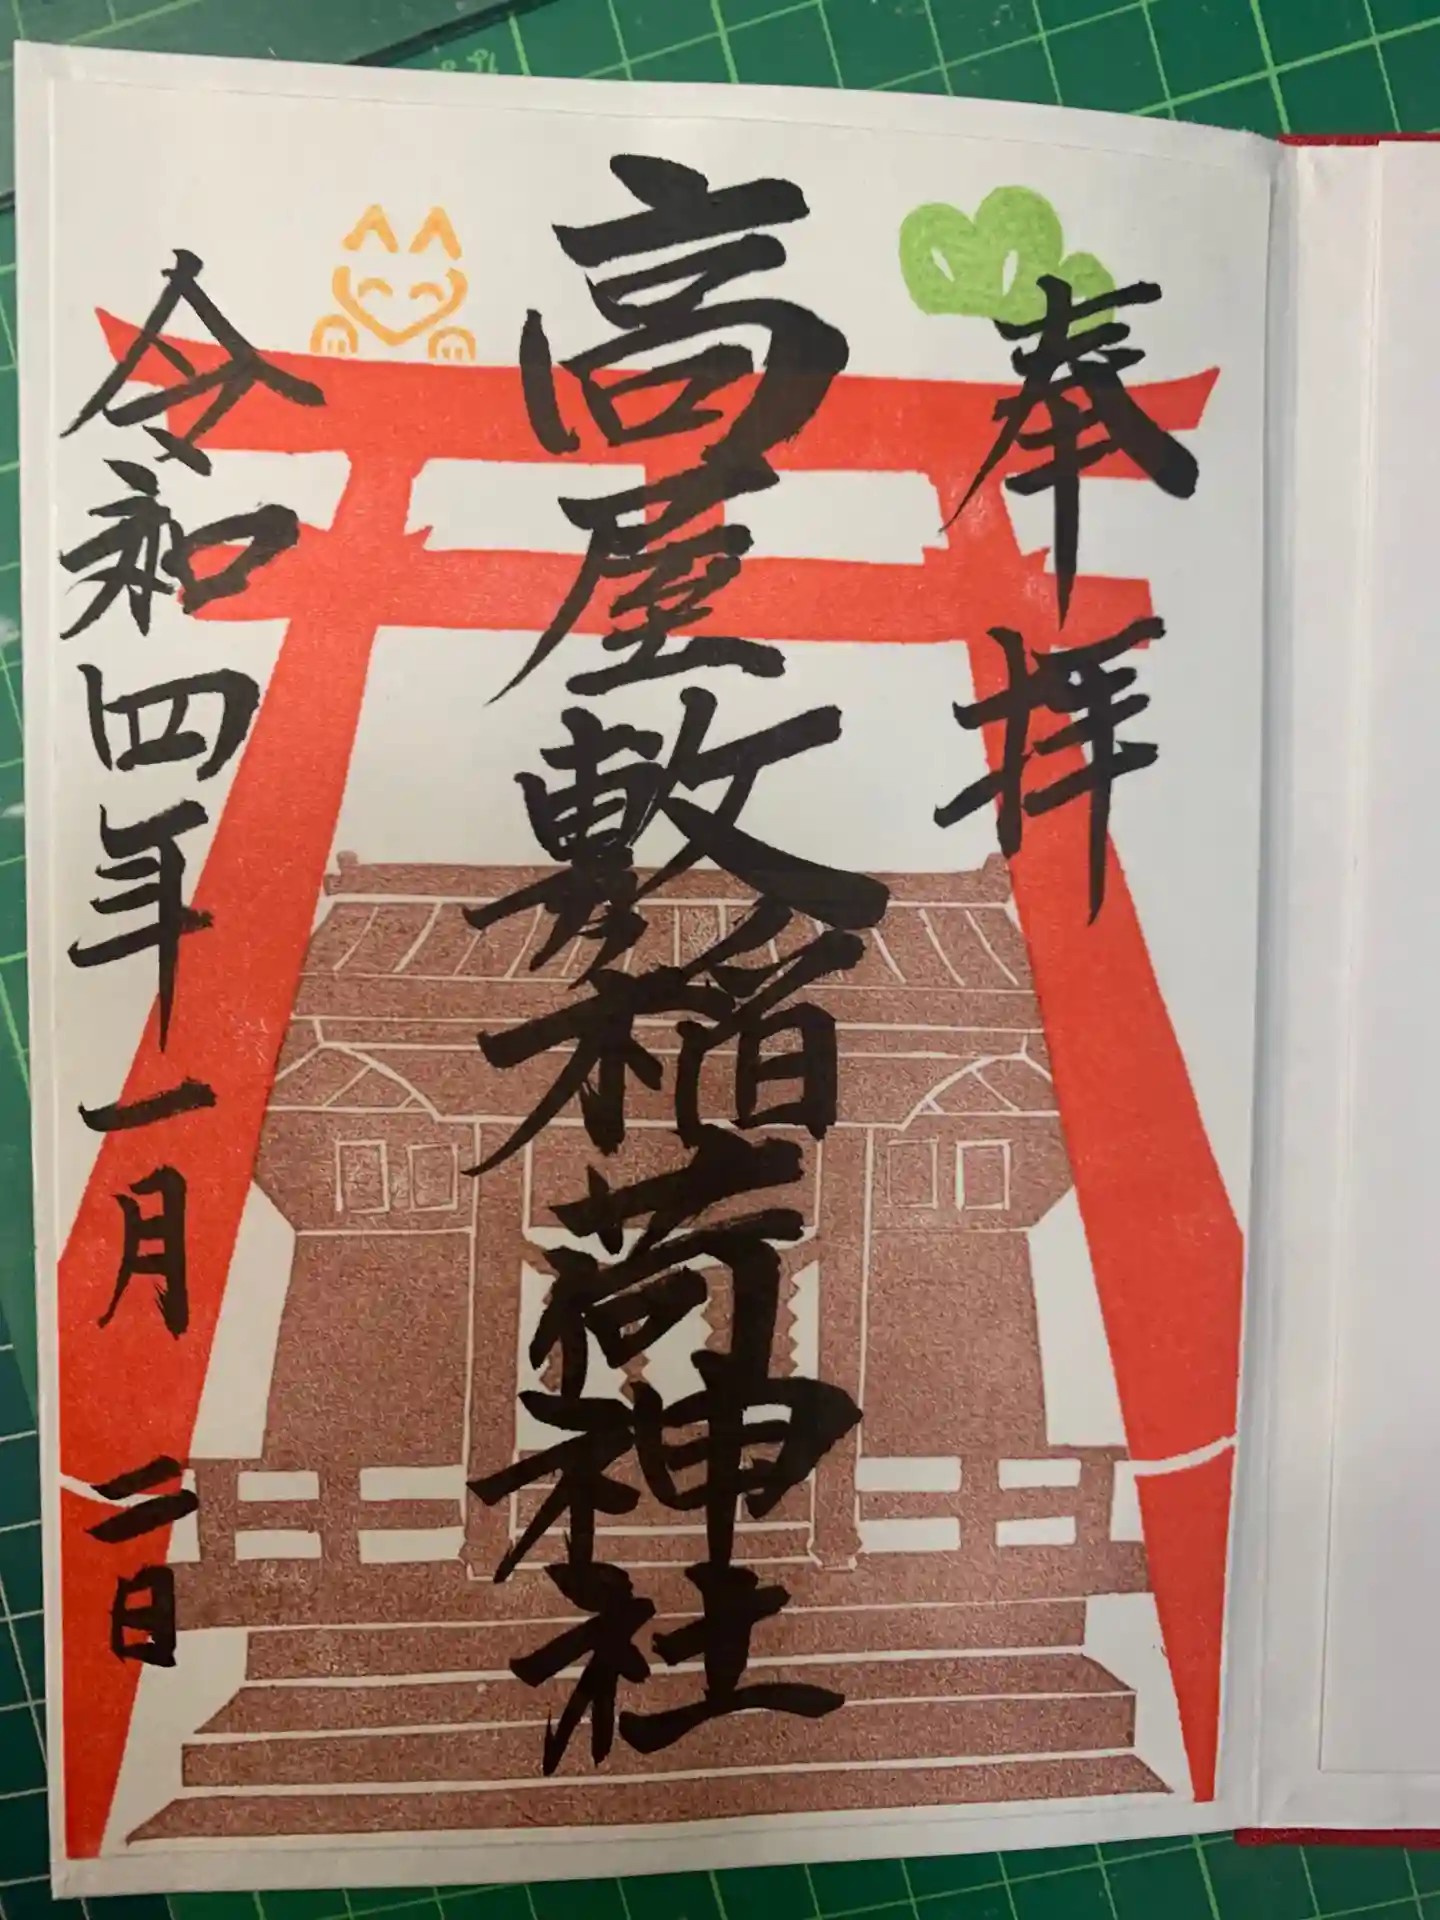 奉拝
高屋敷稲荷神社
令和四年一月二日